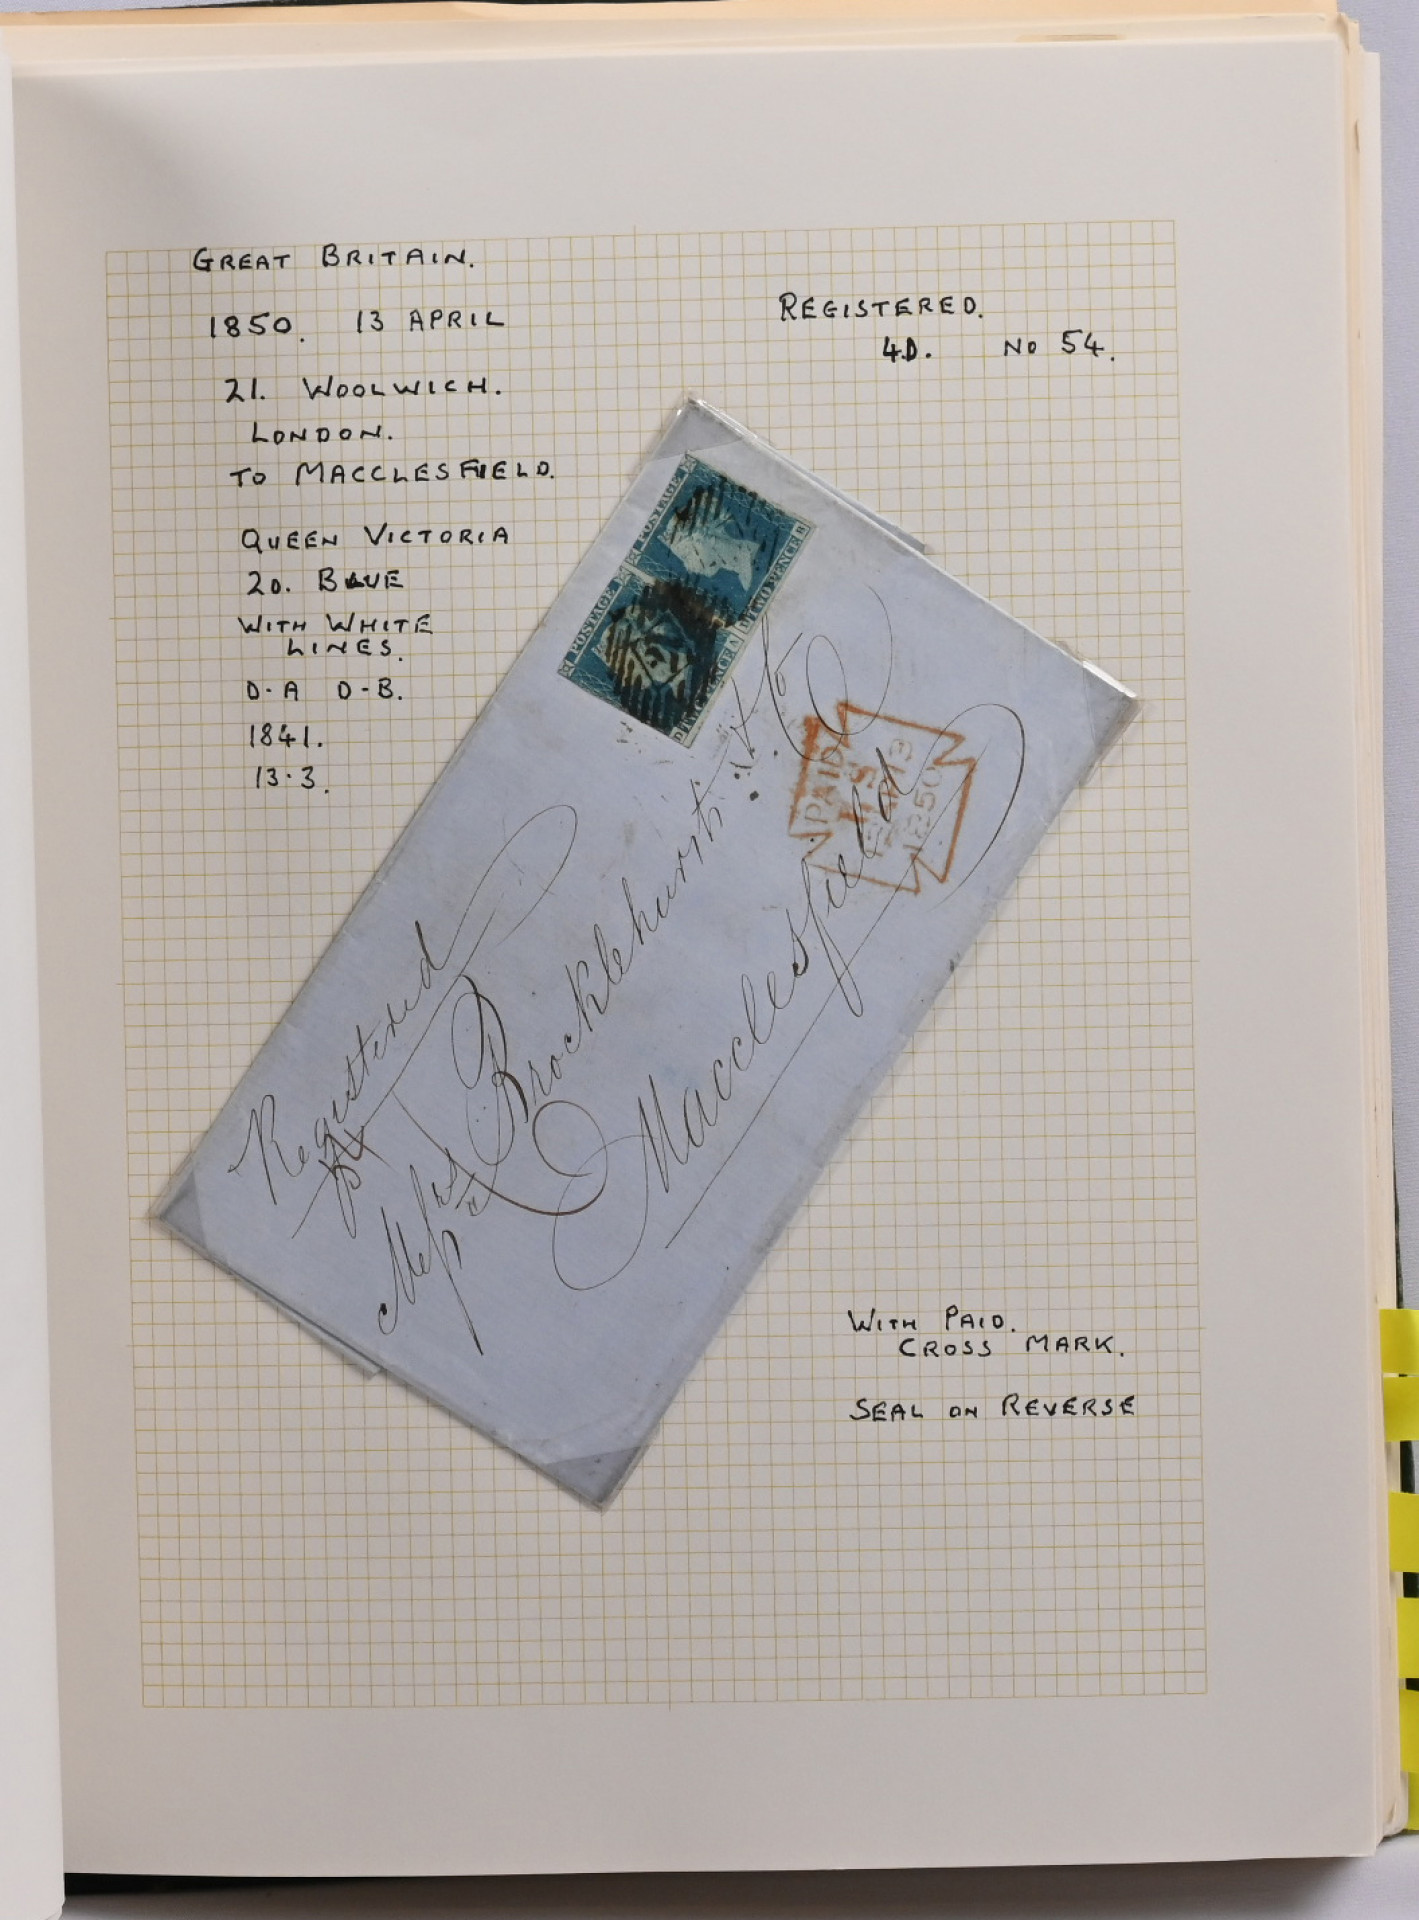 GREAT BRITAIN.
1850. 13 APRIL
21. WOOLWICH.
LONDON.
TO MACCLESFIELD.
QUEEN VICTORIA
2D. BLUE
WITH WHITE
LINES.
D-A D-B.
1841.
13.3.
REGISTERED.
4D. No 54.
POSTAGE
TWO PENCE
D B
POSTAGE
TWO PENCE
D A
PAID
1850
Registered
54
Messrs Brocklehurst & Co
Macclesfield
WITH PAID.
CROSS MARK.
SEAL ON REVERSE